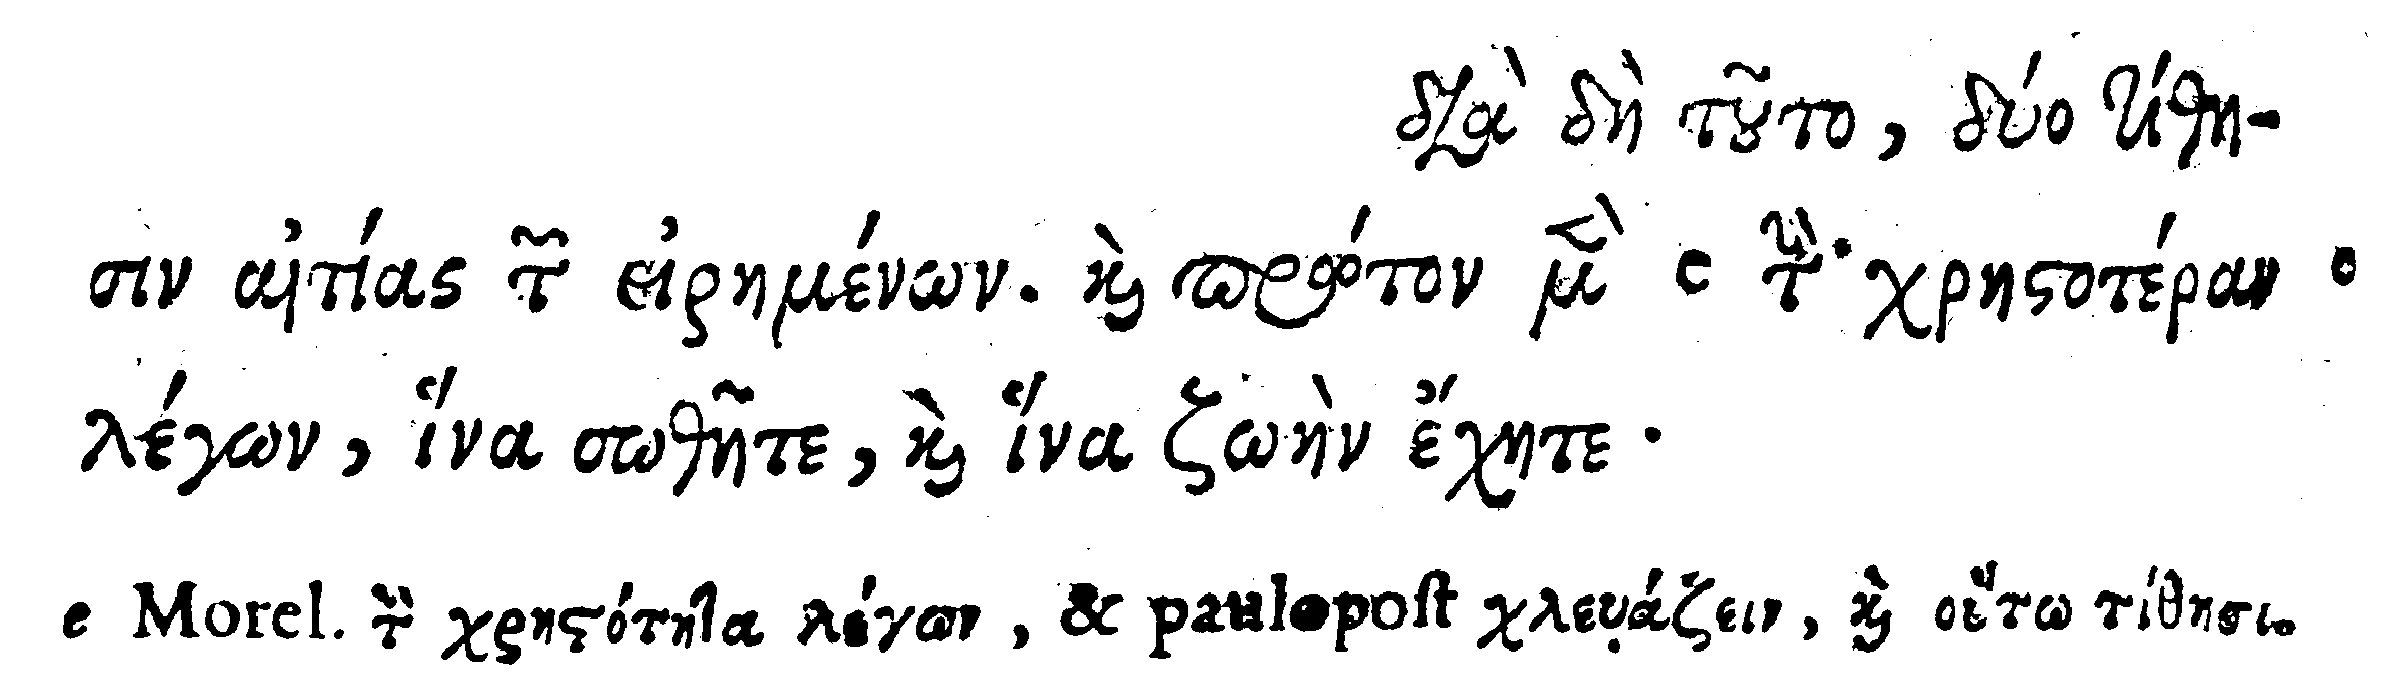 διὰ δὴ τοῦτο, δύο τίθη-
σιν αἰτίας τῶν εἰρημένων. καὶ πρῶτον μὲν e τὴν χρηστοτέραν ὁ
λέγων, ἵνα σωθῆτε, καὶ ἵνα ζωὴν ἔχητε.
e Morel. τὴν χρηστότητα λέγων, & paulopost χλευάζειν, καὶ οὕτω τίθησι.